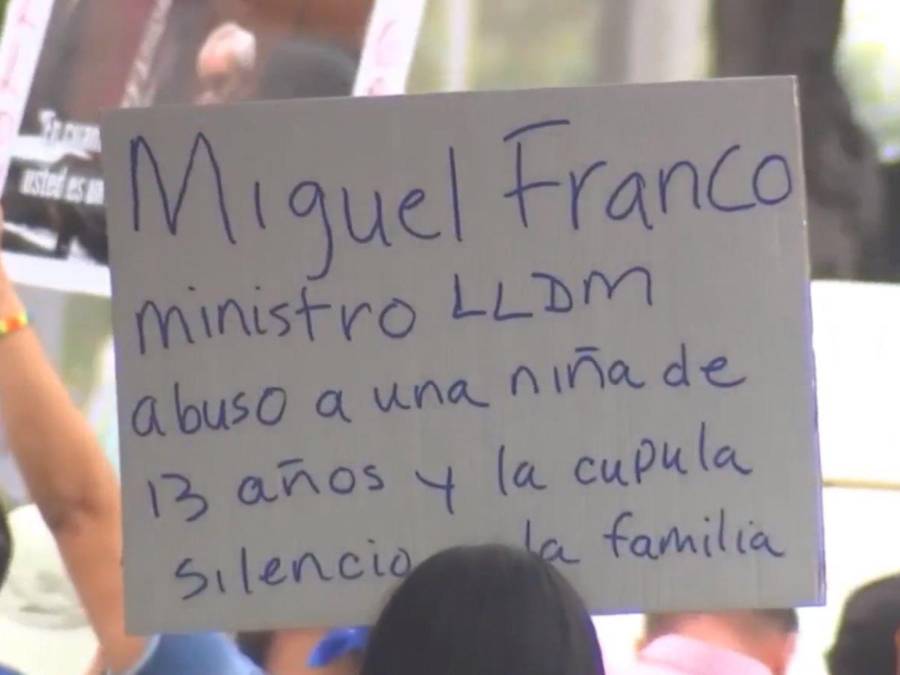 Miguel Franco
ministro LLDM
abuso a una niña de
13 años y la cupula
silencio la familia
usted es un